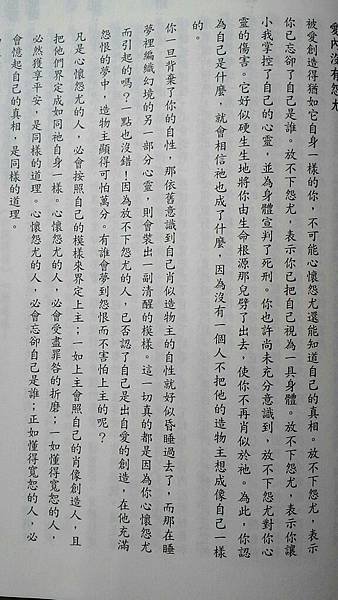 愛內沒有怨尤
被愛創造得猶如它自身一樣的你，不可能心懷怨尤還能知道自己的真相。放不下怨尤，表示
你已忘卻了自己是誰。放不下怨尤，表示你已把自己視為一具身體。放不下怨尤，表示你讓
小我掌控了自己的心靈，並為身體宣判了死刑。你也許尚未充分意識到，放不下怨尤對你心
靈的傷害。它好似硬生生地將你由生命根源那兒劈了出去，使你不再肖似於祂。為此，你認
為自己是什麼，就會相信祂也成了什麼，因為沒有一個人不把他的造物主想成像自己一樣
的。
你一旦背棄了你的自性，那依舊意識到自己肖似造物主的自性就好似昏睡過去了，而那在睡
夢裡編織幻境的另一部分心靈，則會裝出一副清醒的模樣。這一切真的都是因為你心懷怨尤
而引起的嗎？一點也沒錯！因為放不下怨尤的人，已否認了自己是出自愛的創造，在他充滿
怨恨的夢中，造物主顯得可怕萬分。有誰會夢到怨恨而不害怕上主的呢？
凡是心懷怨尤的人，必會按照自己的模樣來界定上主；一如上主會照自己的肖像創造人，且
把他們界定成如同祂自身一樣。心懷怨尤的人，必會受盡罪咎的折磨；一如懂得寬恕的人，
必然獲享平安，是同樣的道理。心懷怨尤的人，必會忘卻自己是誰；正如懂得寬恕的人，必
會憶起自己的真相，是同樣的道理。